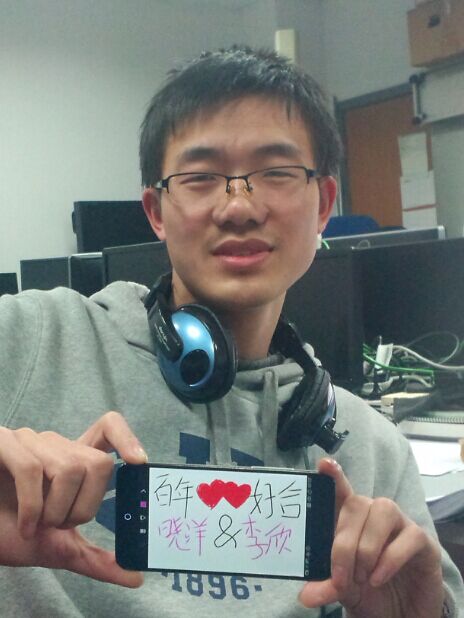 百年 好合
晓洋&李欣
1896